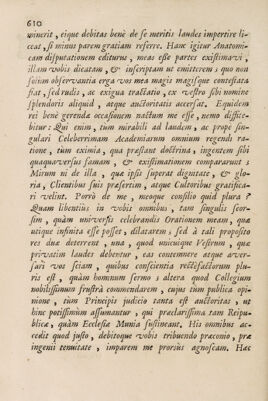 610
minerit, eique debitas benè de se meritis laudes impertire li-
ceat, si minus parem gratiam referre. Hanc igitur Anatomi-
cam disputationem editurus, meas esse partes existimavi,
illam vobis dicatam, & inscriptam ut emitterem; quo non
solùm observantia erga vos mea magis magisque contestata
fiat, sed rudis, ac exigua tractatio, ex vestro sibi nomine
splendoris aliquid, atque auctoritatis accersat. Equidem
rei benè gerenda occasionem nactum me esse, nemo diffite-
bitur: Qui enim, tum mirabili ad laudem, ac prope sin-
gulari Celeberrimam Academiarum omnium regendi ra-
tione, tùm eximia, qua præstant doctrina, ingentem sibi
quaquaversus famam, & existimationem compararunt;
Mirum ni de illa, qua ipsi superat dignitate, & glo-
ria, Clientibus suis præsertim, atque Cultoribus gratifica-
ri velint. Porrò de me, meoque consilio quid plura?
Quam libentiùs à vobis omnibus, tam singulis seor-
sim, quàm universis celebrandis Orationem meam, quæ
utique infinita esse posset, dilatarem; sed à tali proposito
res due deterrent, una, quod unicuique Vestrum, quæ
privatim laudes debentur, eas contemnere atque aver-
sari vos sciam, quibus conscientia rectefactorum plu-
ris est, quàm hominum sermo: altera quod Collegium
nobilissimum frustrà commendarem, cujus tùm publica opi-
nione, tùm Principis judicio tanta est auctoritas, ut
hinc potissimùm assumantur, qui præclarissima tam Reipu-
blicæ, quàm Ecclesiæ Munia sustineant. His omnibus ac-
cedit quod justo, debitoque vobis tribuendo præconio, præ
ingenii tenuitate, imparem me prorsus agnoscam. Hac